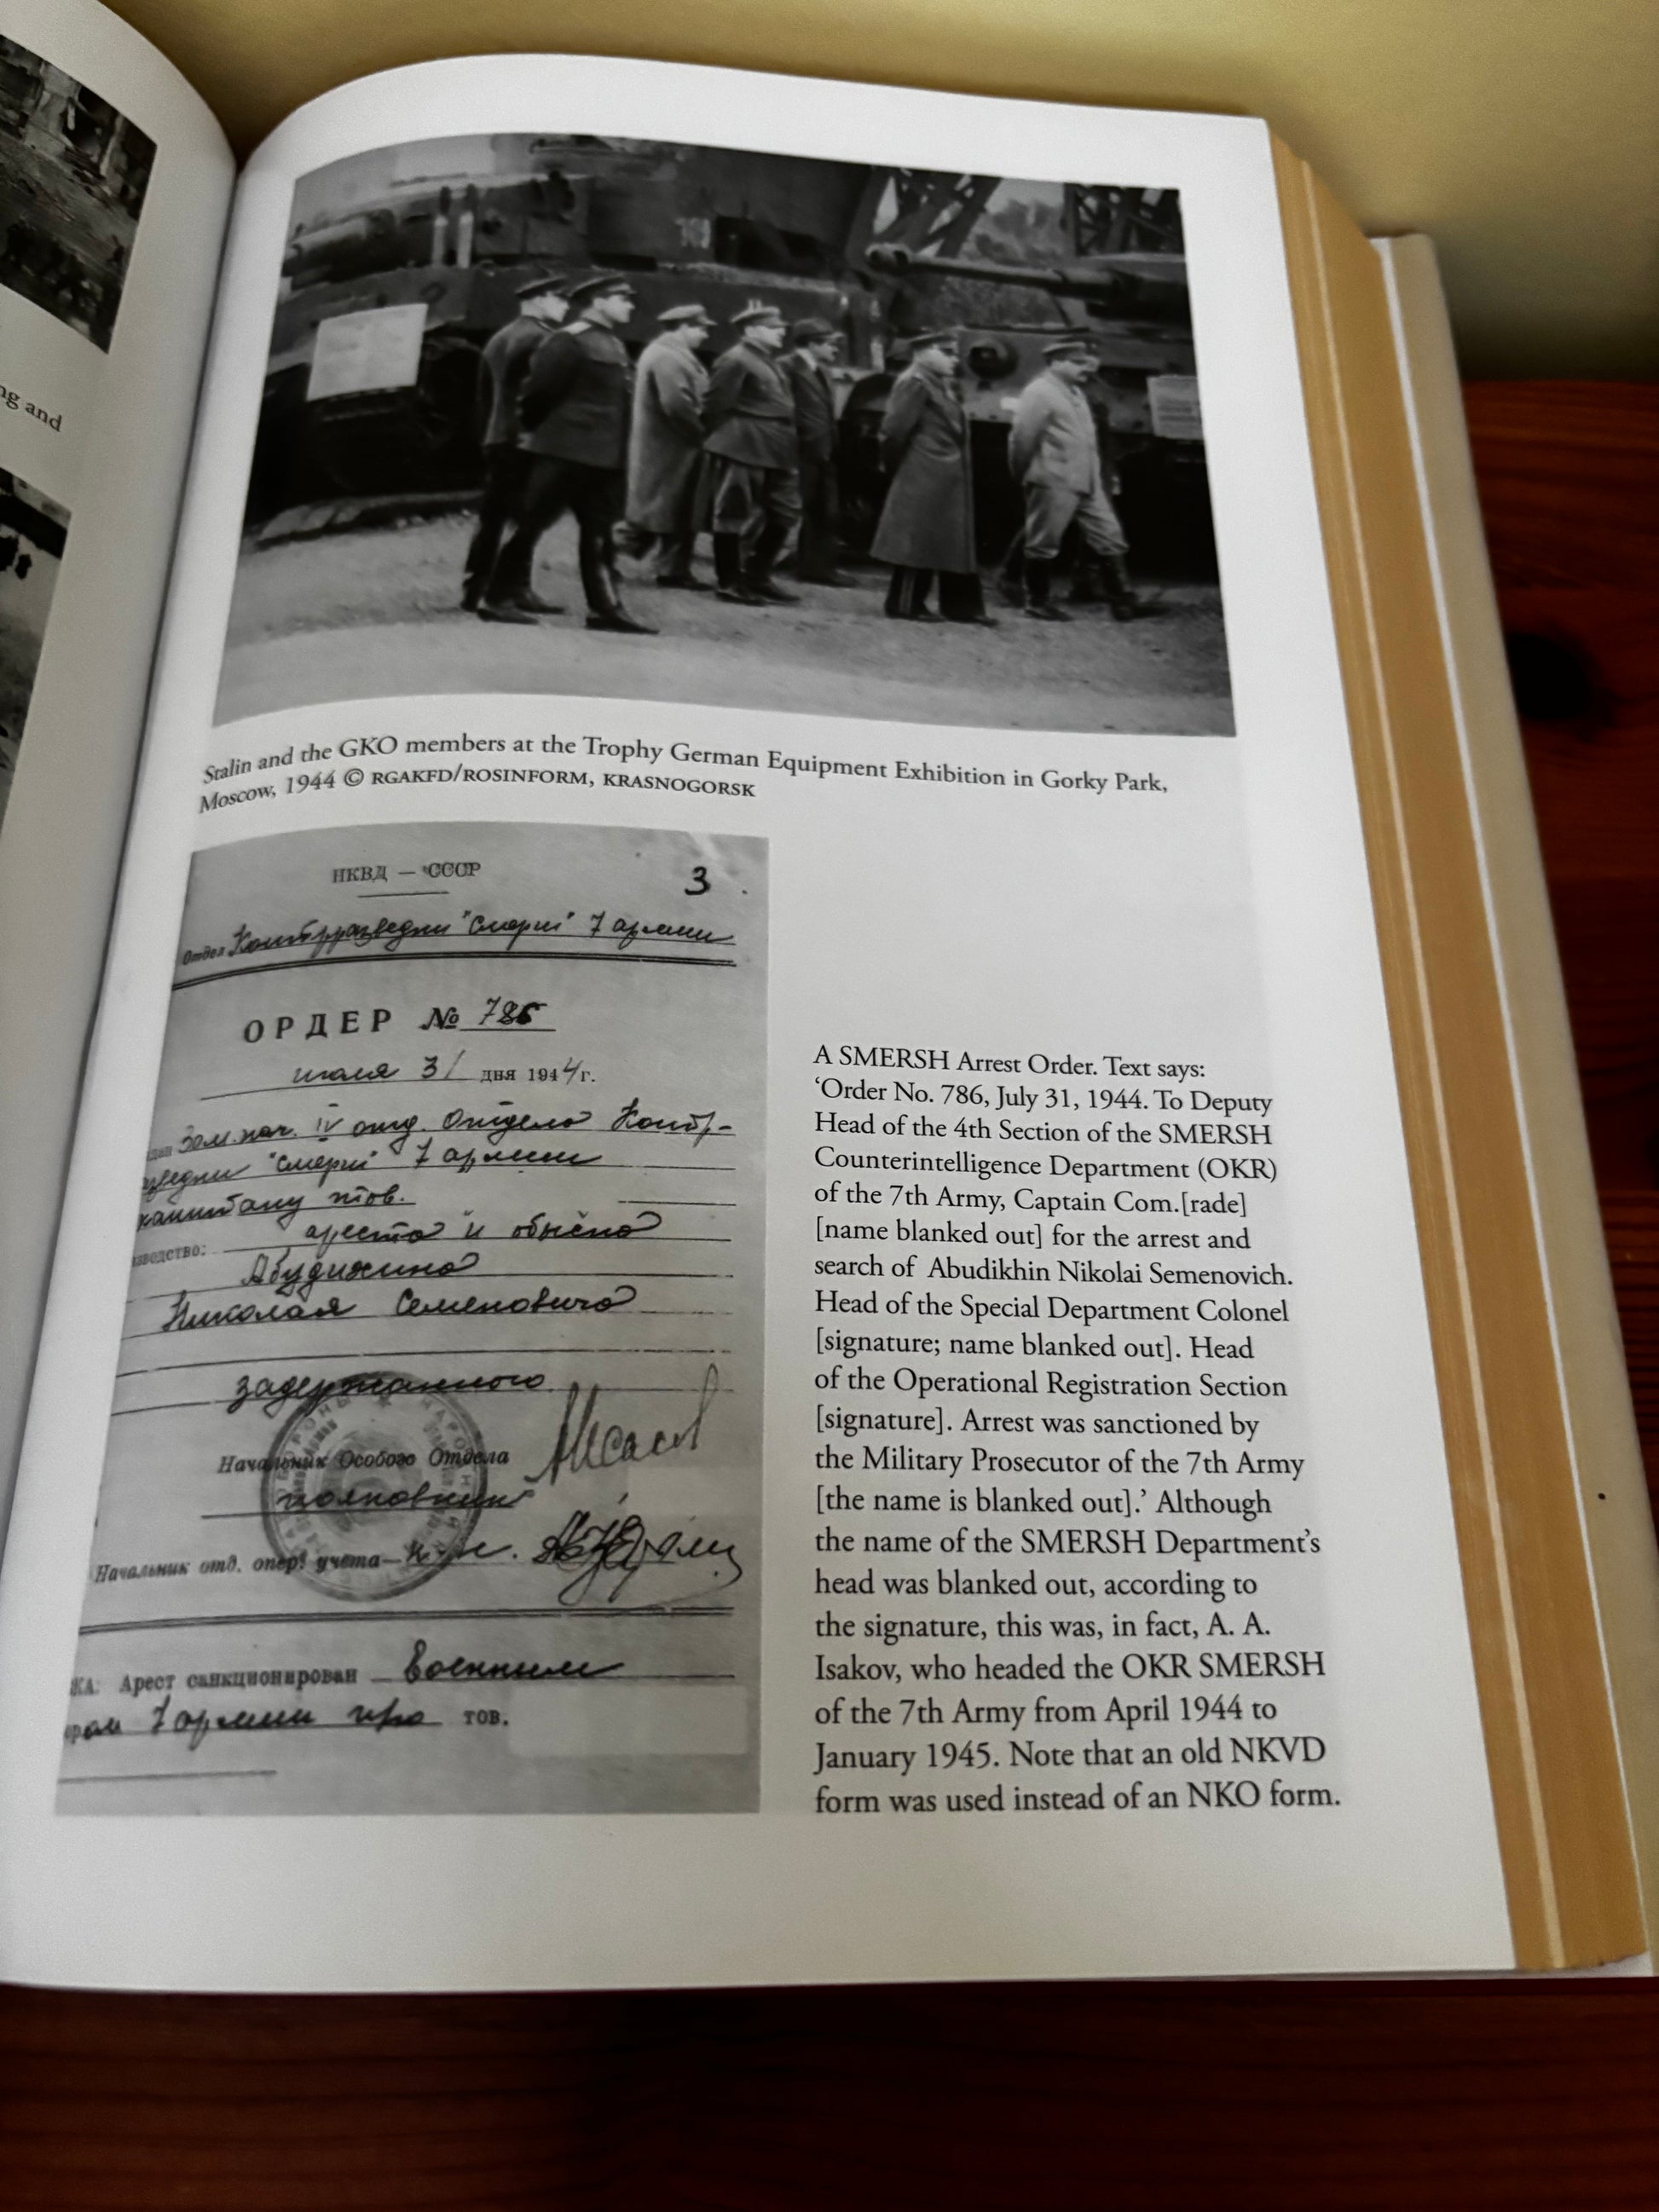 ng and
Stalin and the GKO members at the Trophy German Equipment Exhibition in Gorky Park,
Moscow, 1944 © RGAKFD/ROSINFORM, KRASNOGORSK
НКВД — СССР
3
Отдел Контрразведки "Смерш" 7 армии
ОРДЕР № 786
июля 31 дня 1944 г.
дан Зам. нач. IV отд. Отдела Контр-
зведки "Смерш" 7 армии
капитану тов.
зводство: ареста и обыска
Абудихина
Николая Семеновича
задержанного
Начальник Особого Отдела
полковник
Начальник отд. опер. учета—
КА: Арест санкционирован Военным
ром 7 армии тов.
A SMERSH Arrest Order. Text says:
‘Order No. 786, July 31, 1944. To Deputy
Head of the 4th Section of the SMERSH
Counterintelligence Department (OKR)
of the 7th Army, Captain Com.[rade]
[name blanked out] for the arrest and
search of Abudikhin Nikolai Semenovich.
Head of the Special Department Colonel
[signature; name blanked out]. Head
of the Operational Registration Section
[signature]. Arrest was sanctioned by
the Military Prosecutor of the 7th Army
[the name is blanked out].’ Although
the name of the SMERSH Department’s
head was blanked out, according to
the signature, this was, in fact, A. A.
Isakov, who headed the OKR SMERSH
of the 7th Army from April 1944 to
January 1945. Note that an old NKVD
form was used instead of an NKO form.